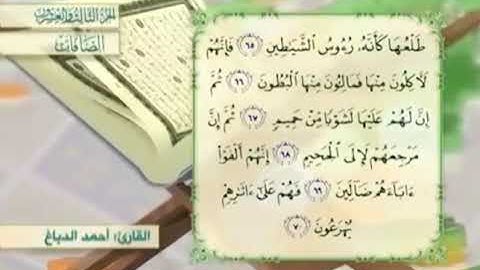 الجزء الثالث والعشرون
الصافات
طَلْعُهَا كَأَنَّهُۥ رُءُوسُ ٱلشَّيَٰطِينِ ٦٥ فَإِنَّهُمْ
لَءَاكِلُونَ مِنْهَا فَمَالِـُٔونَ مِنْهَا ٱلْبُطُونَ ٦٦ ثُمَّ
إِنَّ لَهُمْ عَلَيْهَا لَشَوْبًا مِّنْ حَمِيمٍ ٦٧ ثُمَّ إِنَّ
مَرْجِعَهُمْ لَإِلَى ٱلْجَحِيمِ ٦٨ إِنَّهُمْ أَلْفَوْا۟
ءَابَآءَهُمْ ضَآلِّينَ ٦٩ فَهُمْ عَلَىٰٓ ءَاثَٰرِهِمْ
يُهْرَعُونَ ٧٠
القارئ: أحمد الدباغ